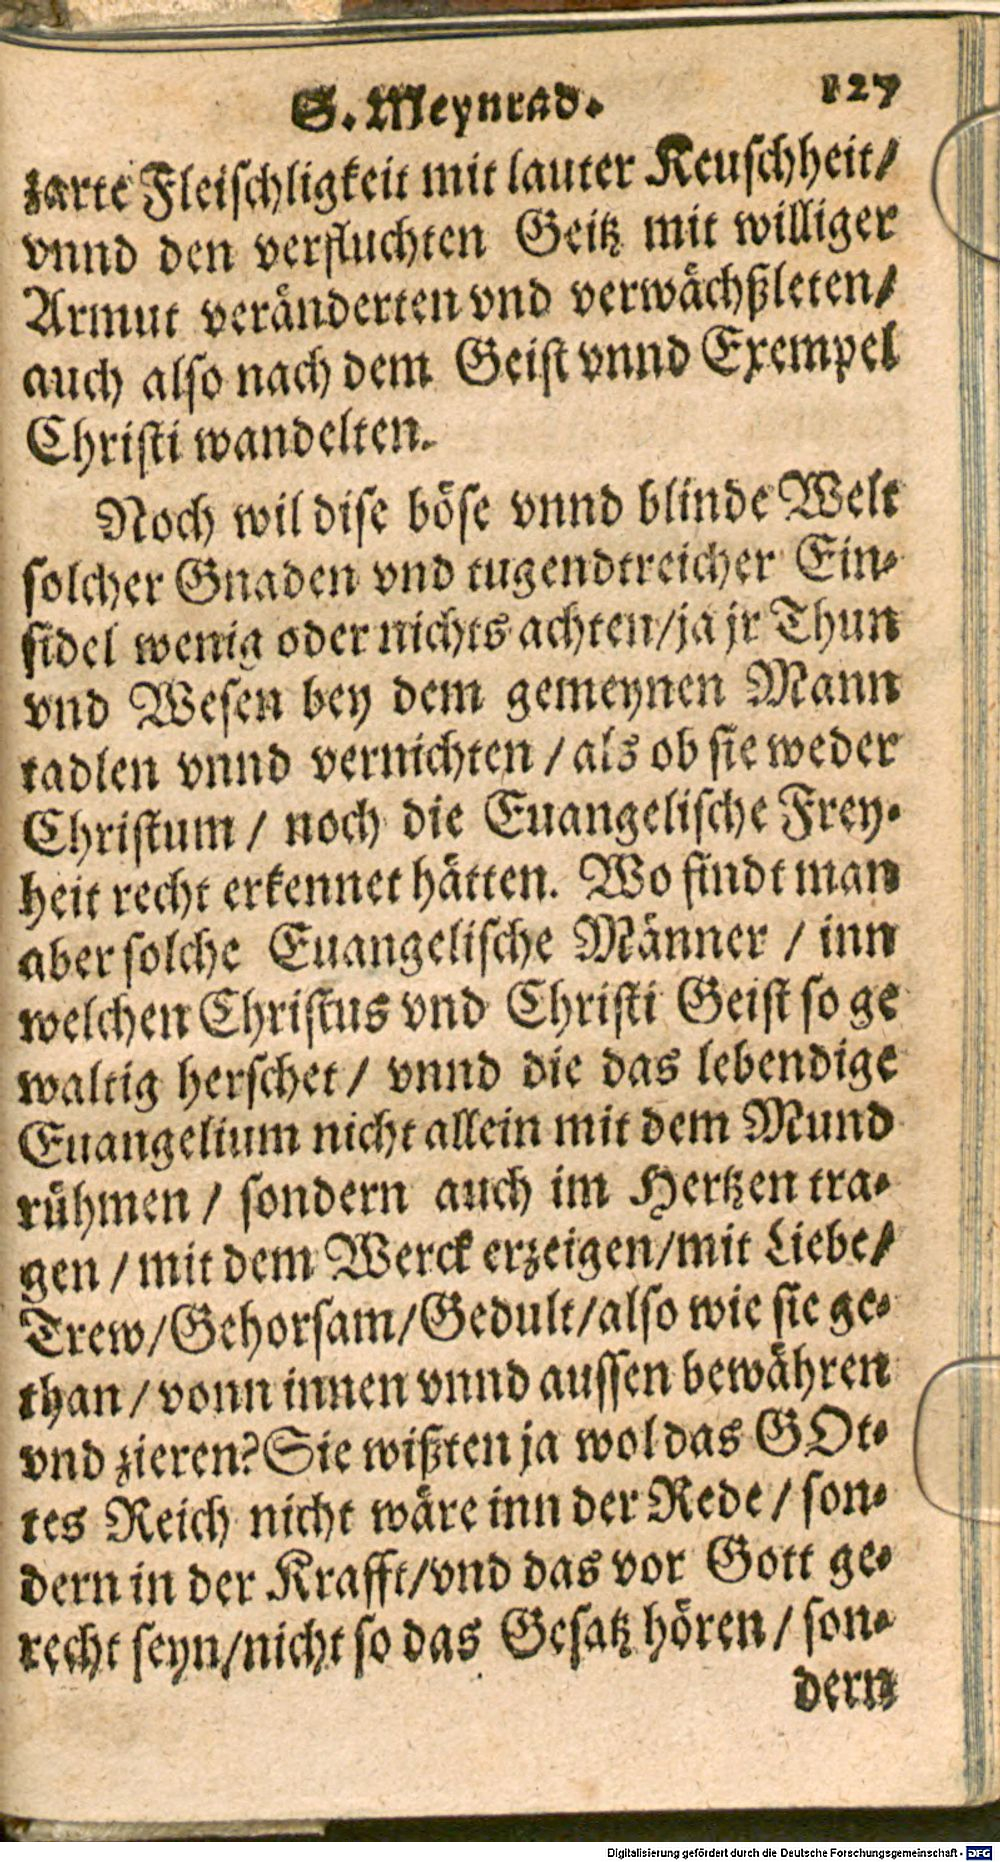 S. Meynrad. 127
zarte Fleischligkeit mit lauter Keuschheit/
vnnd den verfluchten Geitz mit williger
Armut veränderten vnd verwächßleten/
auch also nach dem Geist vnnd Exempel
Christi wandelten.
Noch wil dise böse vnnd blinde Welt
solcher Gnaden vnd tugendtreicher Ein-
sidel wenig oder nichts achten/ja jr Thun
vnd Wesen bey dem gemeynen Mann
tadlen vnnd vernichten / als ob sie weder
Christum / noch die Euangelische Frey-
heit recht erkennet hätten. Wo findt man
aber solche Euangelische Männer / inn
welchen Christus vnd Christi Geist so ge
waltig herschet / vnnd die das lebendige
Euangelium nicht allein mit dem Mund
rühmen / sondern auch im Hertzen tra-
gen / mit dem Werck erzeigen/mit Liebe/
Trew/Gehorsam/Gedult/also wie sie ge-
than / vonn innen vnnd aussen bewähren
vnd zieren? Sie wißten ja wol das GOt-
tes Reich nicht wäre inn der Rede / son-
dern in der Krafft/vnd das vor Gott ge-
recht seyn/nicht so das Gesatz hören / son-
dern
Digitalisierung gefördert durch die Deutsche Forschungsgemeinschaft - DFG